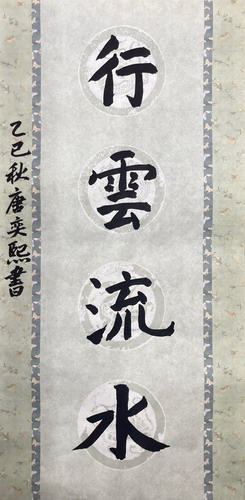 行雲流水
乙巳秋唐奕熙書